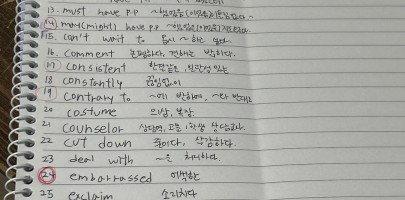 13. must have p.p ~했었음(이었음)에 틀림없다
14 may(might) have p.p
15. can't wait to 몹시 ~하고 싶다
16. comment 논평하다, 견해를 밝히다.
17 consistent 한결같은, 일관성있는
18 constantly 끊임없이
19 contrary to ~에 반하여, ~와 반대로
20 costume 의상, 복장
21 counselor 상담역, 고문, 학생 상담교사
22 cut down 줄이다, 삭감하다.
23 deal with ~을 처리하다
24 embarrassed 어색한
25 exclaim 소리치다